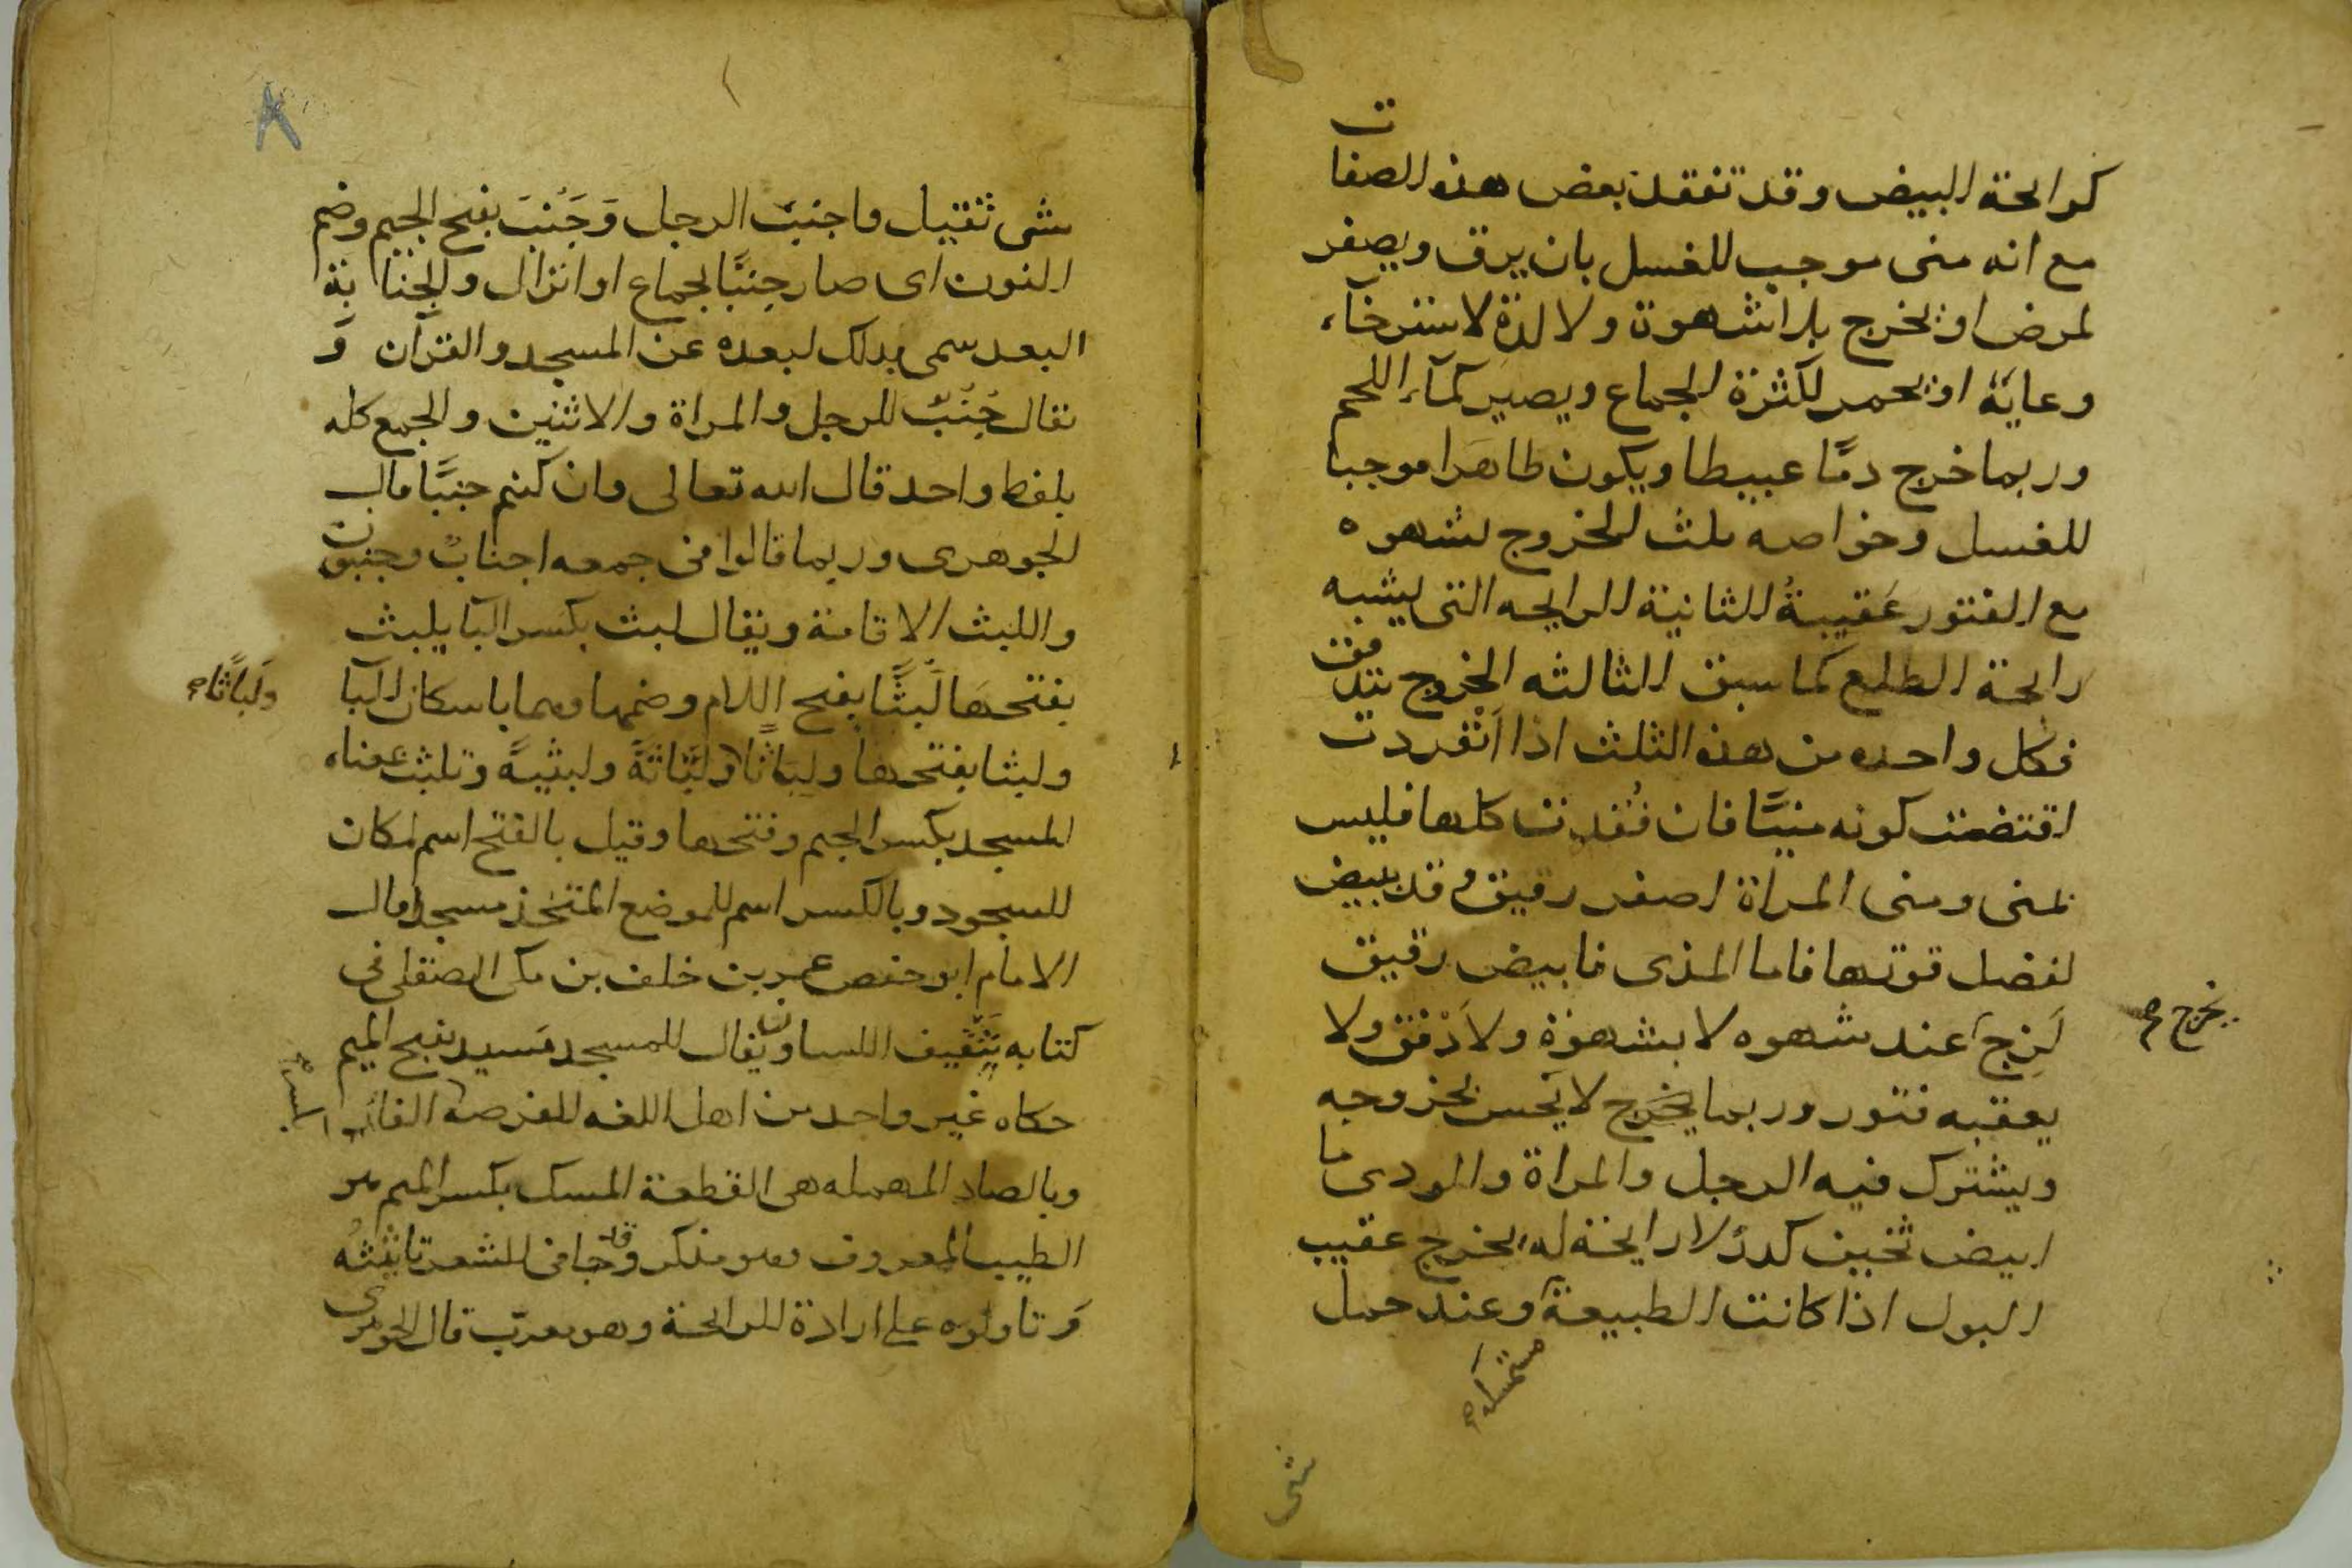 كرائحة البيض وقد تفقد بعض هذه الصفات
مع انه منى موجب للغسل بان يرق ويصفر
لمرض او يخرج بلا شهوة ولا لذة لاسترخآء
وعايه او يحمر لكثرة الجماع ويصير كمآء اللحم
وربما خرج دمًا عبيطا ويكون طاهرا موجبا
للغسل وخواصه ثلث الخروج بشهوه
مع الفتور عَقيبهُ الثانية الرايحه التى يشبه
رائحة الطلع كما سبق الثالثه الخروج بتدفق
فكل واحده من هذه الثلث اذا انفردت
اقتضت كونه منيًّا فان فُقدت كلها فليس
بمنى ومنى المراة اصفر رقيق وقد يبيض
لفضل قوتها فاما المذى فابيض رقيق
لَزِج عند شهوه لا بشهوة ولا دفق ولا
يخرج صح
يعقبه فتور وربما يخرج لا يحس بخروجه
ويشترك فيه الرجل والمراة والودى ما
ابيض ثخين كدرٌ لا رايحة له يخرج عقيب
البول اذا كانت الطبيعة وعند حمل
مستمسكة صح
شى
شى ثقيل واجنب الرجل وَجَنُبَ بفتح الجيم وضم
النون اى صار جنبًا بجماع او انزال والجنابة
البعد سمى بذلك لبعده عن المسجد والقرآن وَ
يقال جُنُبٌ للرجل والمراة والاثنين والجمع كله
بلفظ واحد قال الله تعالى وان كنتم جنبًا قال
الجوهرى وربما قالوا فى جمعه اجنابٌ وجنبون
واللبث الاقامة ويقال لبث بكسر البآ يلبث
بفتحها لَبثًا بفتح اللام وضمها وهما باسكان البآ
ولَبَاثًا صح
ولبثا بفتحها ولباثا ولَبَاثةً ولبيثةً وتلبث بمعناه
المسجد بكسر الجيم وفتحها وقيل بالفتح اسم لمكان
للسجود وبالكسر اسم للموضع المتخذ مسجدا قال
الامام ابو حفص عمر بن خلف بن مكى الصقلى فى
كتابه تثقيف اللسان ويقال للمسجد مَسيد بفتح الميم
حكاه غير واحد من اهل اللغه الفرصة الفاء
وبالصاد المهمله هى القطعة المسك بكسر الميم هو
الطيب المعروف وهو مذكر وقد جا فى الشعر تانيثه
وَتاولوه على ارادة الرائحة وهو معرّب قال الجوهرى